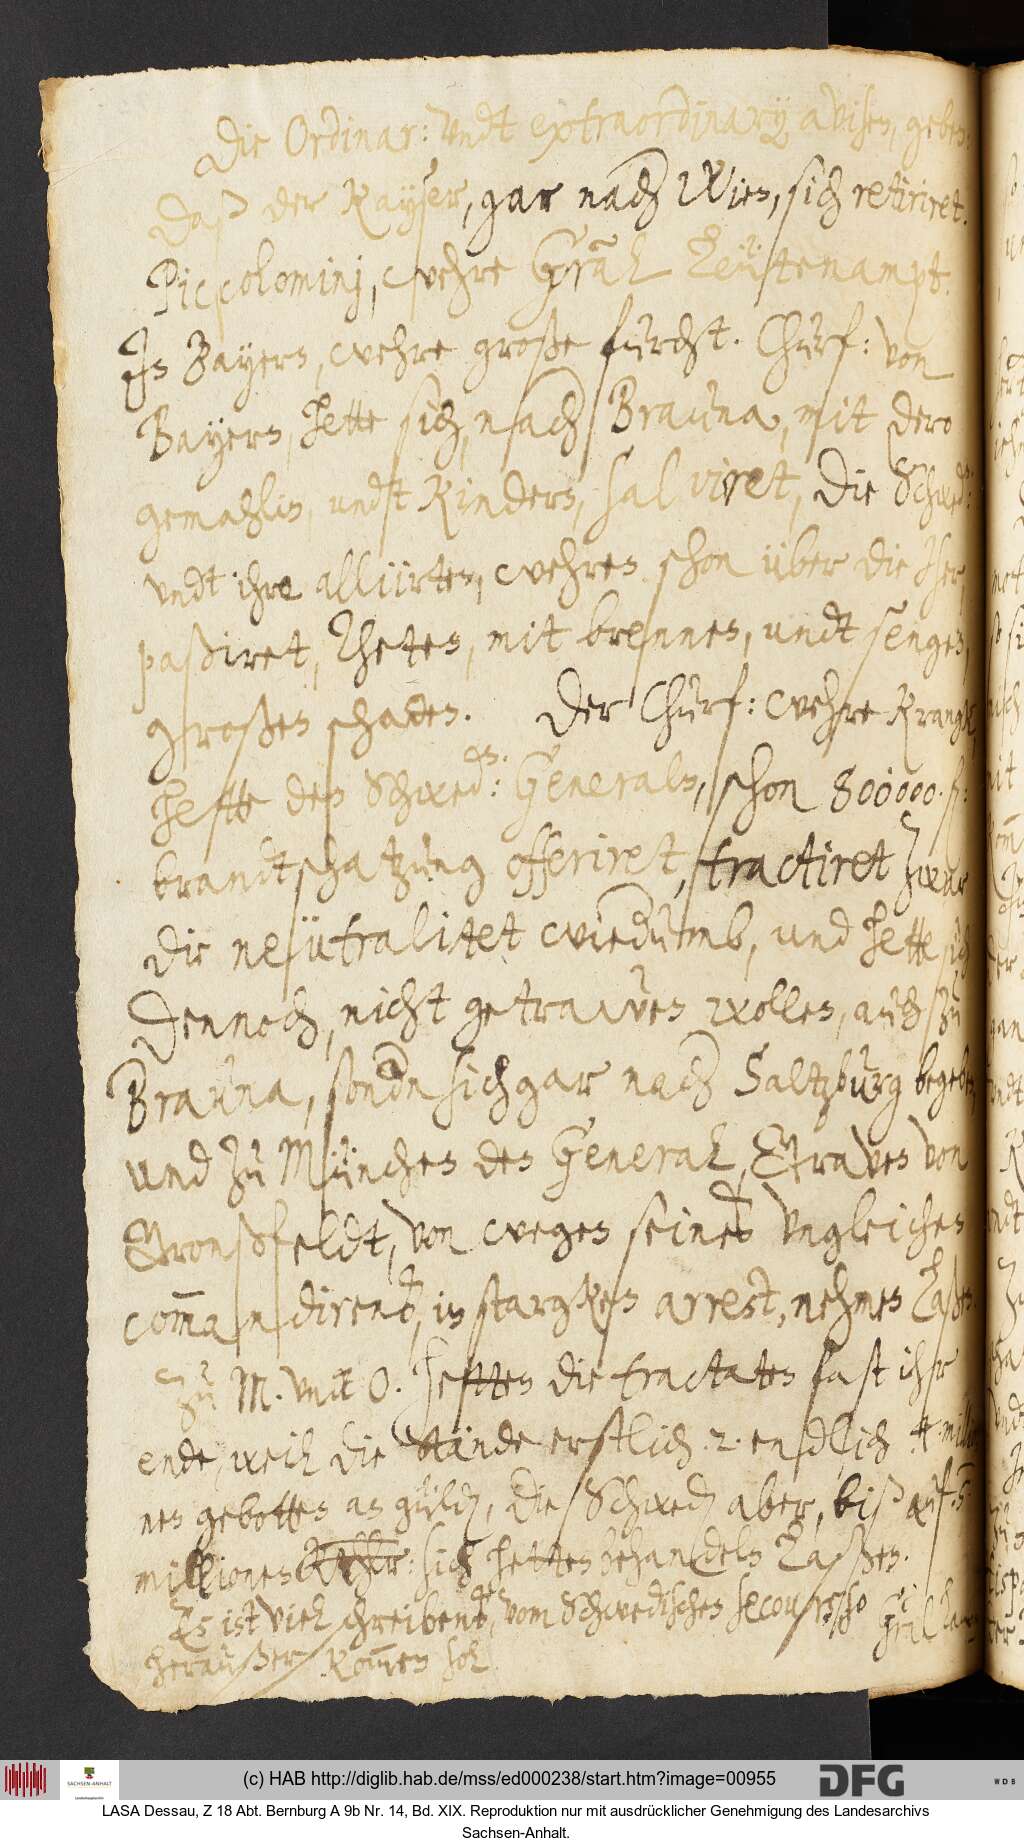 Die Ordinar: undt extraordinarÿ avisen, geben:
Daß der Kayser, gar nach Wien, sich retiriret.
Piccolominj, wehre Gräl Leütenampt.
In Bayern, wehre große furcht. Churf: von
Bayern, hette sich, nach Brauna, mit dero
gemahlin, undt Kindern, salviret, die Schwed:
undt ihre alliirten, wehren schon über die Iser,
paßiret, theten, mit brennen, undt sengen,
großen schaden. Der Churf: wehre Kranck,
hette den Schwed:en Generaln, schon 800000. f:
brandtschatzung offeriret, tractiret zwar
die neütralitet wiedumb, und hette sich
dennoch, nicht getrawen wollen, auch zu
Brauna, sondn sich gar nach Saltzburg begeben,
und zu München den General, Graven von
Gronßfeldt, von wegen seines ungleichen
com̄andirens, in starcken arrest, nehmen laßen.
Zu M. undt O. hetten die tractaten fast ihr
ende, weil die Stände erstlich .2. endlich 4. millio
nen gebotten an güldn, die Schwedn aber, biß auf .5.
millionen sich hetten behandeln laßen.
Es ist viel schreibens, vom Schwedischen secours, so
heraußer kom̄en sol
(c) HAB http://diglib.hab.de/mss/ed000238/start.htm?image=00955
DFG
SACHSEN-ANHALT
WDB
LASA Dessau, Z 18 Abt. Bernburg A 9b Nr. 14, Bd. XIX. Reproduktion nur mit ausdrücklicher Genehmigung des Landesarchivs
Sachsen-Anhalt.